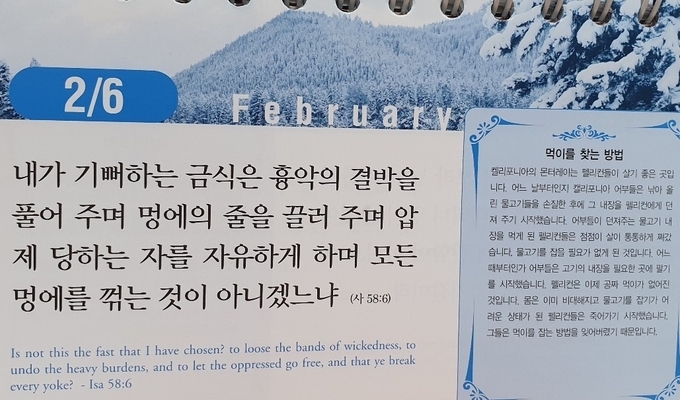 2/6
February
내가 기뻐하는 금식은 흉악의 결박을
풀어 주며 멍에의 줄을 끌러 주며 압
제 당하는 자를 자유하게 하며 모든
멍에를 꺾는 것이 아니겠느냐 (사 58:6)
Is not this the fast that I have chosen? to loose the bands of wickedness, to
undo the heavy burdens, and to let the oppressed go free, and that ye break
every yoke? - Isa 58:6
먹이를 찾는 방법
켈리포니아의 몬터레이는 펠리컨들이 살기 좋은 곳입
니다. 어느 날부터인지 캘리포니아 어부들은 낚아 올
린 물고기들을 손질한 후에 그 내장을 펠리컨에게 던
져 주기 시작했습니다. 어부들이 던져주는 물고기 내
장을 먹게 된 펠리컨들은 점점이 살이 통통하게 쪄갔
습니다. 물고기를 잡을 필요가 없게 된 것입니다. 어느
때부터인가 어부들은 고기의 내장을 필요한 곳에 팔기
를 시작했습니다. 펠리컨은 이제 공짜 먹이가 없어진
것입니다. 몸은 이미 비대해지고 물고기를 잡기가 어
려운 상태가 된 펠리컨들은 죽어가기 시작했습니다.
그들은 먹이를 잡는 방법을 잊어버렸기 때문입니다.